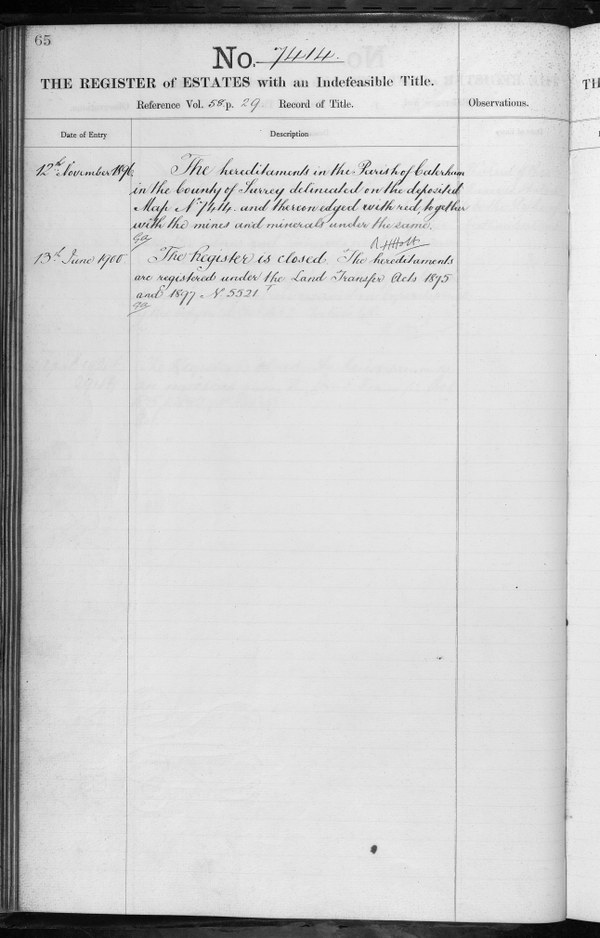 65
No. 7414.
THE REGISTER of ESTATES with an Indefeasible Title.
Reference Vol. 58 p. 29. Record of Title.
Observations.
Date of Entry
Description
12th November 1896.
The hereditaments in the Parish of Caterham
in the County of Surrey delineated on the deposited
Map No. 7414. and thereon edged with red, together
with the mines and minerals under the same.
R H Holt
13th June 1900
The Register is closed. The hereditaments
are registered under the Land Transfer Acts 1875
and 1897 No. 5521